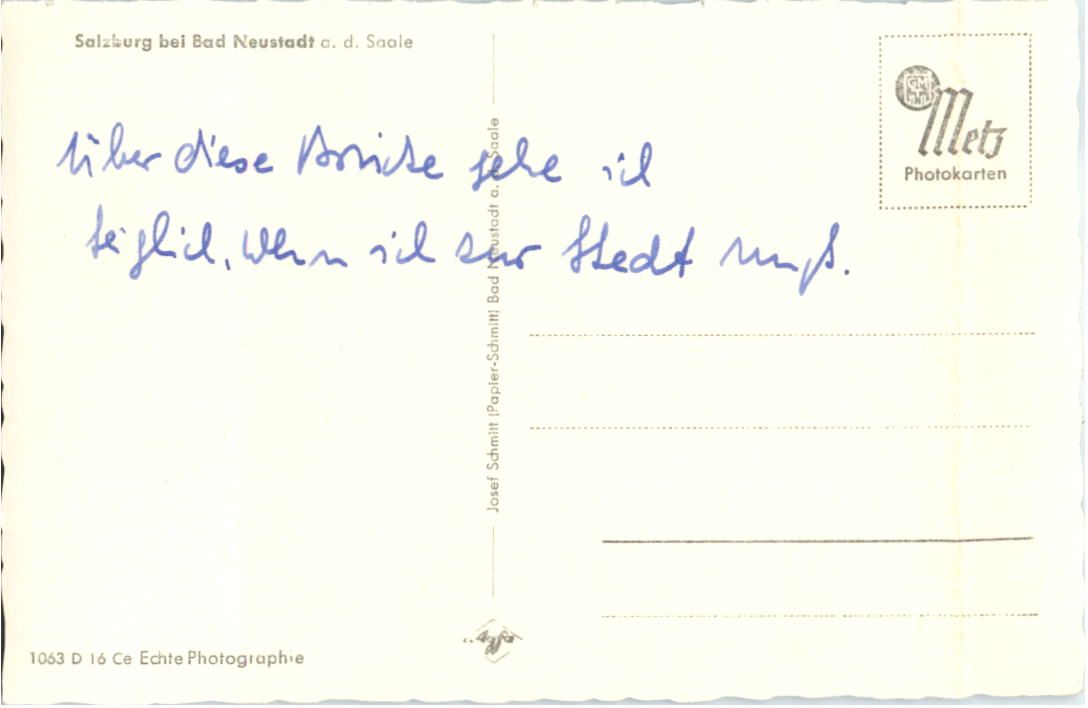 Salzburg bei Bad Neustadt a. d. Saale
GM
Metz
Photokarten
Über diese Brücke gehe ich
täglich, wenn ich zur Stadt muß.
Josef Schmitt (Papier-Schmitt) Bad Neustadt a. d. Saale
Agfa
1063 D 16 Ce Echte Photographie